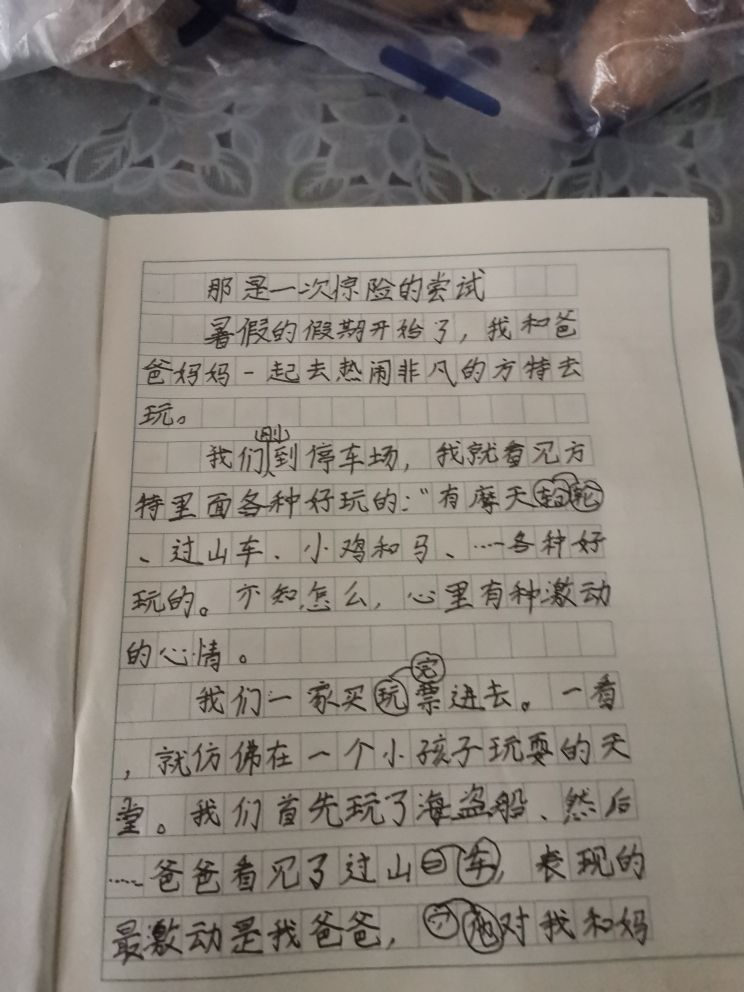 那是一次惊险的尝试
暑假的假期开始了，我和爸
爸妈妈一起去热闹非凡的方特去
玩。
我们刚到停车场，我就看见方
特里面各种好玩的：“有摩天轮
、过山车、小鸡和马、……各种好
玩的。不知怎么，心里有种激动
的心情。
我们一家买完票进去。一看
，就仿佛在一个小孩子玩耍的天
堂。我们首先玩了海盗船、然后
……爸爸看见了过山车，表现的
最激动是我爸爸，他对我和妈